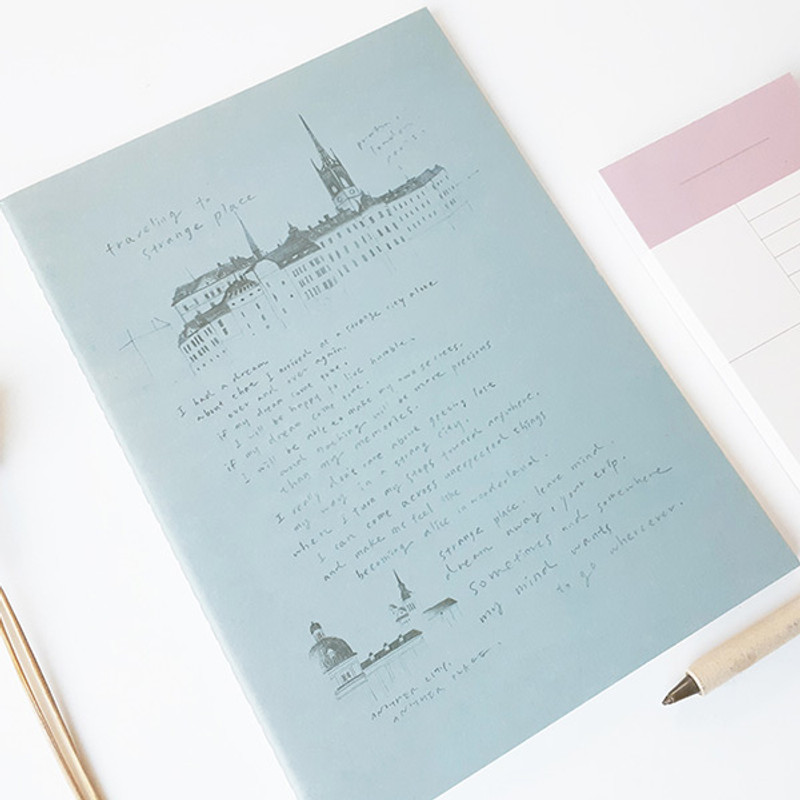 traveling to
strange place
london,
paris.
I had a dream
about that I arrived at a strange city alone
over and over again.
if my dream come true,
I will be happy to live humble.
if my dream come true,
I will be able to make my own secrets.
and nothing will be more precious
than my memories.
I really don't care about getting lost
my way in a strange city.
when I turn my steps toward anywhere,
I can come across unexpected things
and make me feel like
becoming alice in wonderland.
strange place. leave mind.
dream away, your trip.
sometimes and somewhere
my mind wants
to go wherever.
ANOTHER CITY,
ANOTHER